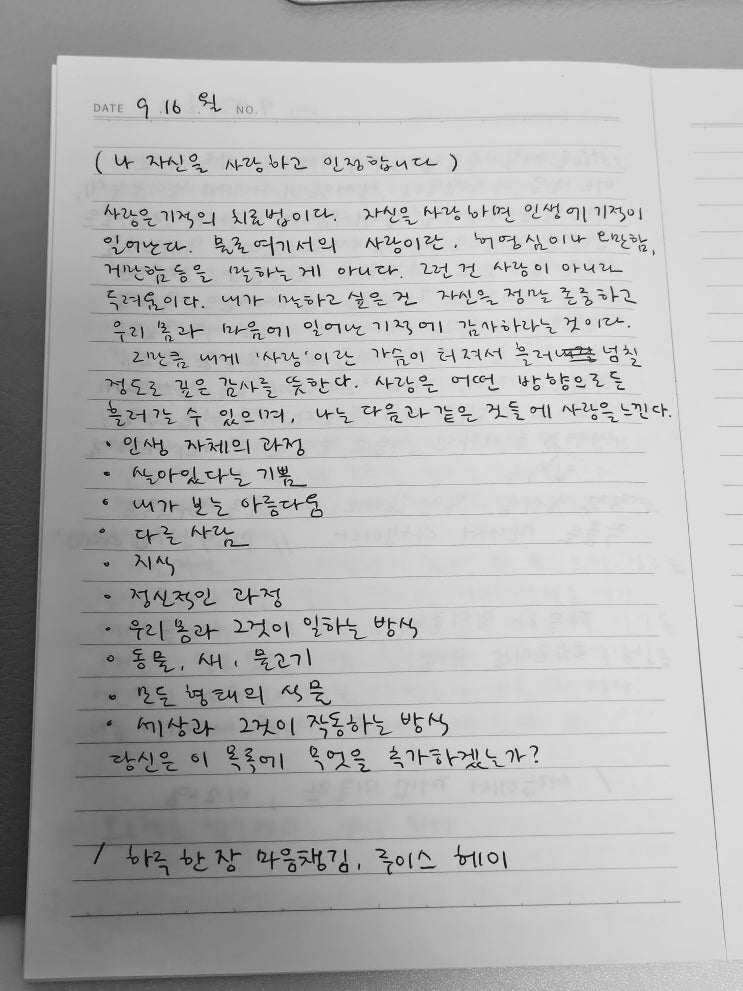 DATE 9.16 월 NO.
( 나 자신을 사랑하고 인정합니다 )
사랑은 기적의 치료법이다. 자신을 사랑하면 인생에 기적이
일어난다. 물론 여기서의 사랑이란, 허영심이나 오만함,
거만함 등을 말하는 게 아니다. 그런 건 사랑이 아니라
두려움이다. 내가 말하고 싶은 건 자신을 정말 존중하고
우리 몸과 마음에 일어난 기적에 감사하라는 것이다.
그만큼 내게 '사랑'이란 가슴이 터져서 흘러넘칠
정도로 깊은 감사를 뜻한다. 사랑은 어떤 방향으로든
흘러갈 수 있으며, 나는 다음과 같은 것들에 사랑을 느낀다.
• 인생 자체의 과정
• 살아있다는 기쁨
• 내가 보는 아름다움
• 다른 사람
• 지식
• 정신적인 과정
• 우리 몸과 그것이 일하는 방식
• 동물, 새, 물고기
• 모든 형태의 식물
• 세상과 그것이 작동하는 방식
당신은 이 목록에 무엇을 추가하겠는가?
/ 하루 한 장 마음챙김, 루이스 헤이